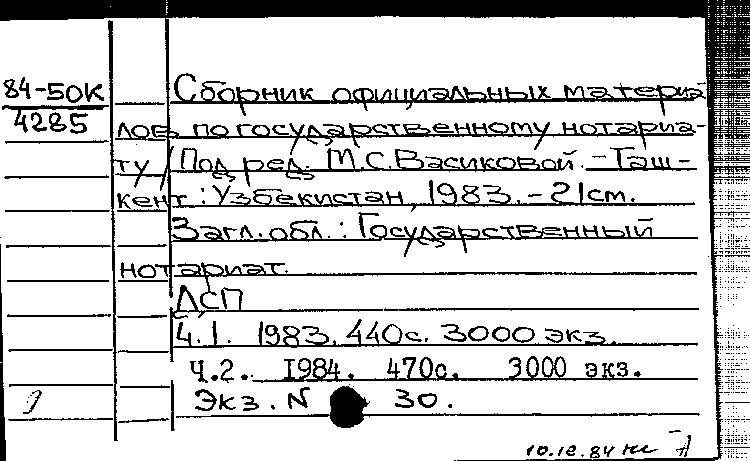 84-50К
4285
Сборник официальных материа
лов по государственному нотариа-
ту / Под ред. М.С.Васиковой. - Таш-
кент : Узбекистан, 1983. - 21см.
Загл. обл. : Государственный
нотариат.
ДСП
Ч.1. 1983. 440с. 3000 экз.
Ч.2. 1984. 470с. 3000 экз.
Экз. N 30.